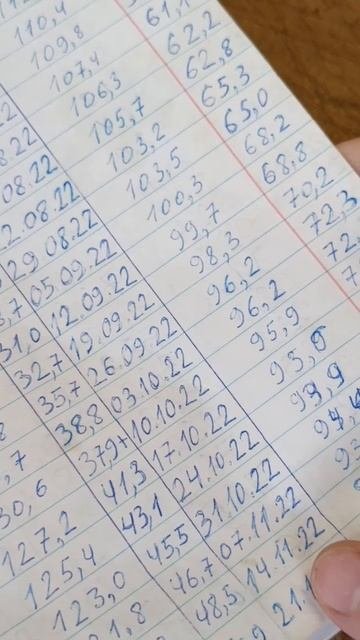 110,4
109,8 61,1
107,4 62,2
106,3 62,8
105,7 65,3
103,2 65,0
08.22 103,5 68,2
29.08.22 100,3 68,8
05.09.22 99,7 70,2
31,0 12.09.22 98,3 72,3
32,7 19.09.22 96,2 72,
35,7 26.09.22 96,2
38,8 03.10.22 95,9
30,6 37,9 10.10.22 93,9
127,2 41,3 17.10.22 93,9
125,4 43,1 24.10.22
123,0 45,5 31.10.22
1,8 46,7 07.11.22
48,5 14.11.22
21.1